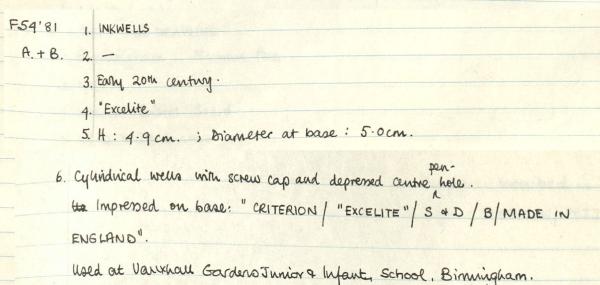 F54'81 1. INKWELLS
A.+B. 2. —
3. Early 20th century.
4. "Excelite"
5. H: 4.9cm. ; Diameter at base: 5.0cm.
6. Cylindrical wells with screw cap and depressed centre pen-hole.
Impressed on base: "CRITERION / "EXCELITE" / S & D / B / MADE IN
ENGLAND".
Used at Vauxhall Gardens Junior & Infant School, Birmingham.